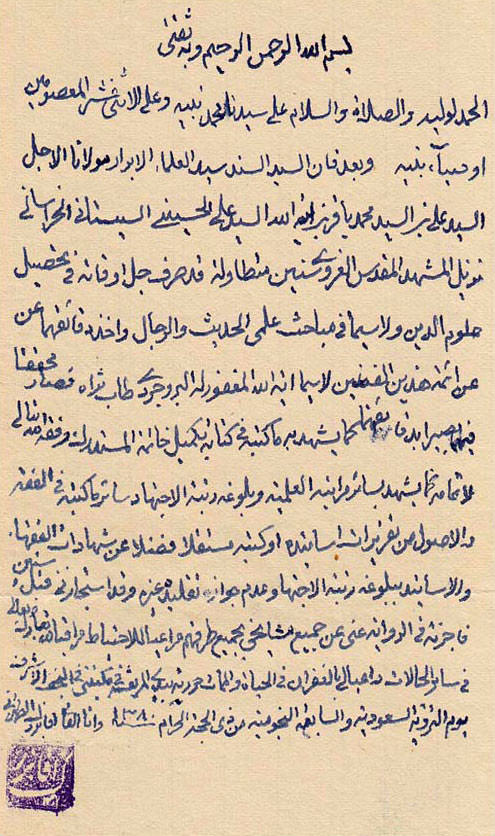 بسم الله الرحمن الرحيم وبه ثقتي
الحمد لوليه والصلاة والسلام على سيدنا محمد نبيه وعلى الاثني عشر المعصومين
اوصياء نبيه وبعد فان السيد السند سيد العلماء الابرار مولانا الاجل
السيد علي بن السيد محمد باقر بن السيد علي الحسيني السيستاني الخراساني
نزيل المشهد المقدس الغروي سنين متطاولة قد صرف جل اوقاته في تحصيل
علوم الدين ولا سيما في مباحث علمي الحديث والرجال واخذ دقائقهما عن
عن ائمة هذين الفنين لا سيما اية الله المغفور له البروجردي طاب ثراه فصار محققا
فيهما بصيرا بدقائقهما كما يشهد به ما كتبه في كتابه تكميل خاتمة المستدرك وفقه الله تعالى
لاتمامه كما يشهد بسائر مراتبه العلمية وبلوغه رتبة الاجتهاد سائر ما كتبه في الفقه
والاصول من تقريرات اساتيذه او كتبه مستقلا فضلا عن شهادات الفقهاء
والاساتيذ ببلوغه رتبة الاجتهاد وعدم جواز تقليده غيره وقد استجازني قبل سنين
فاجزته في الرواية عني عن جميع مشايخي بجميع طرقهم مراعيا للاحتياط مراقبا لله تعالى
في سائر الحالات داعيا لي بالغفران في الحياة والممات حررته بيدي المرتعشة في مكتبتي في النجف الاشرف
يوم التروية السعودية والسابعة النجومية من ذي الحجة الحرام ١٣٨٠ وانا الفاني